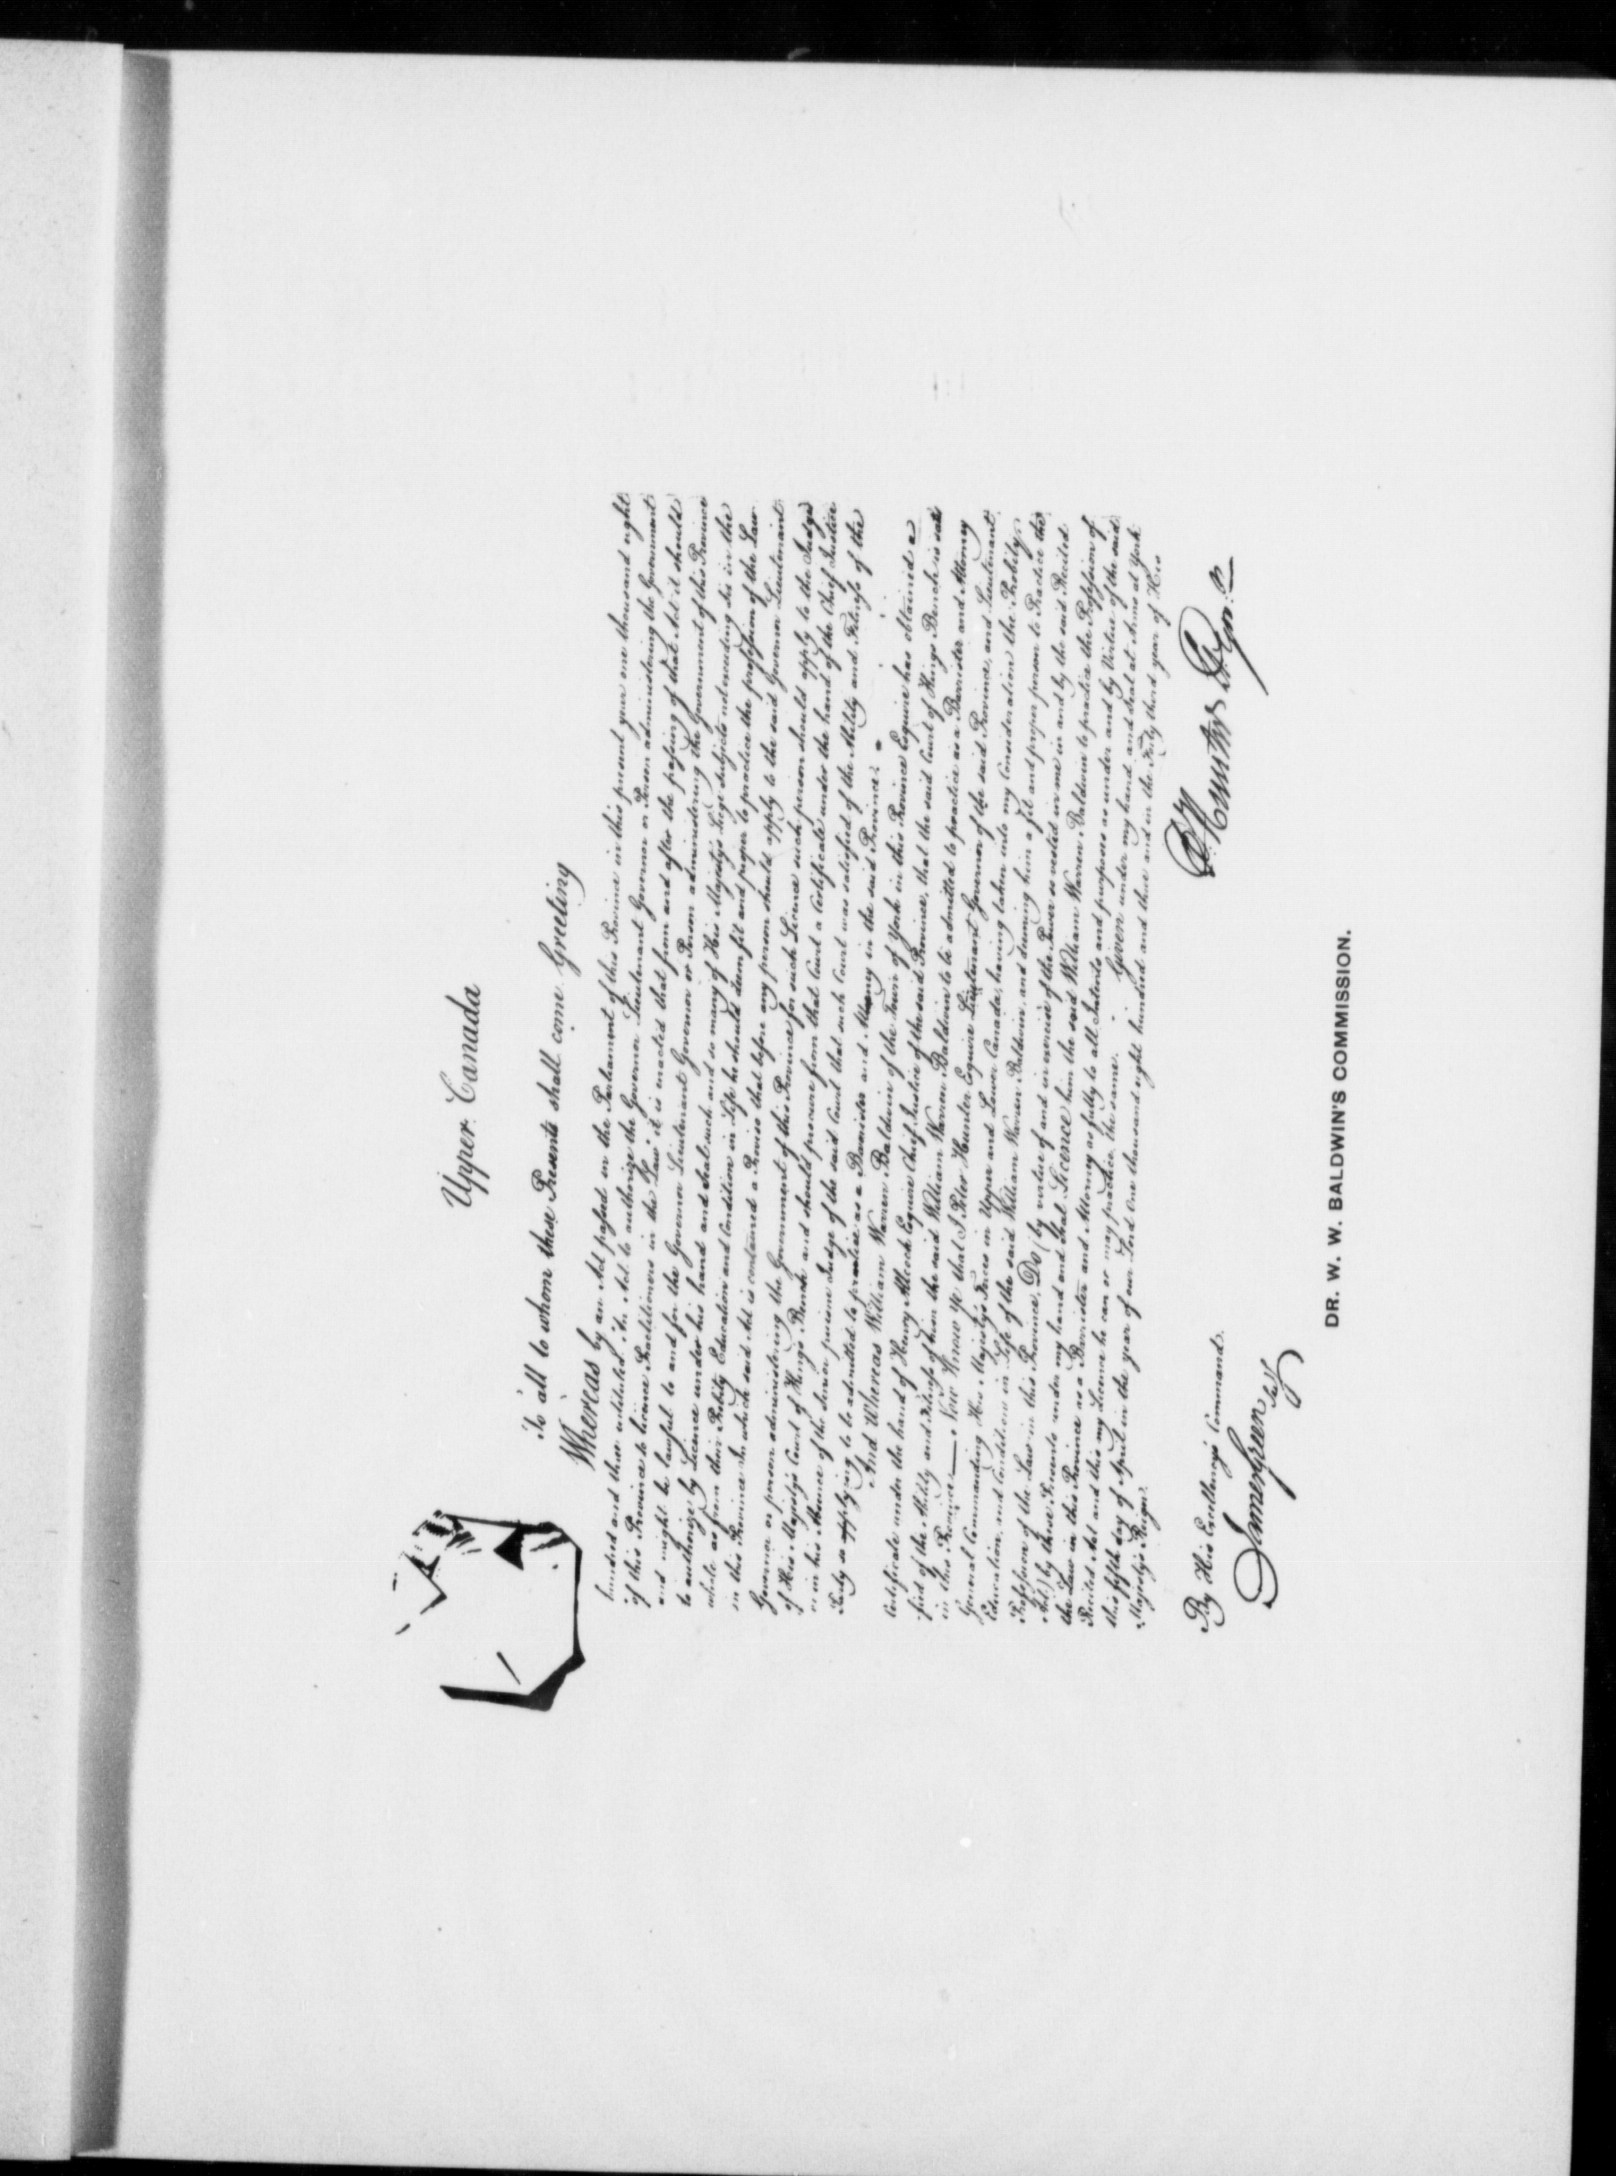 Upper Canada
To all to whom these Presents shall come Greeting
Whereas by an Act passed in the Parliament of this Province in this present year one thousand eight
hundred and three intituled, An Act to authorize the Governor Lieutenant Governor or Person administering the Government
of this Province to licence Practitioners in the Law, it is enacted that from and after the passing of that Act it should
and might be lawful to and for the Governor Lieutenant Governor or Person administering the Government of this Province
to authorize by Licence under his hand and Seal such and so many of His Majesty's Liege Subjects not exceeding Six in the
whole as from their Probity Education and Condition in Life he should deem fit and proper to practice the profession of the Law
in this Province In which said Act is contained a Proviso that before any person should apply to the said Governor Lieutenant
Governor or person administering the Government of this Province for such Licence such person should apply to the Judge
of His Majesty's Court of Kings Bench and should procure from that Court a Certificate under the hand of the Chief Justice
or in his Absence of the Senior puisne Judge of the said Court that such Court was satisfied of the Ability and Fitness of the
Party so applying to be admitted to practice as a Barrister and Attorney in the said Province.
And Whereas William Warren Baldwin of the Town of York in this Province Esquire has obtained a
Certificate under the hand of Henry Allcock Esquire Chief Justice of the said Province, that the said Court of Kings Bench is satis
fied of the Ability and Fitness of him the said William Warren Baldwin to be admitted to practice as a Barrister and Attorney
in this Province — Now Know Ye that I Peter Hunter Esquire Lieutenant Governor of the said Province, and Lieutenant
General Commanding His Majesty's Forces in Upper and Lower Canada, having taken into my Consideration the Probity
Education, and Condition in Life of the said William Warren Baldwin, and deeming him a fit and proper person to Practice the
Profession of the Law in this Province, Do (by virtue of and in exercise of the Power so vested in me in and by the said Recited
Act) by these Presents under my hand and Seal Licence him the said William Warren Baldwin to practice the Profession of
the Law in this Province as a Barrister and Attorney as fully to all Intents and purposes as under and by Virtue of the said
Recited Act and this my Licence he can or may practice the same. Given under my hand and Seal at Arms at York
this fifth day of April in the year of our Lord One thousand eight hundred and three and in the Forty third year of His
Majesty's Reign.
P. Hunter Lt. Govr.
By His Excellency's Command.
James Green Secy
DR. W. W. BALDWIN'S COMMISSION.